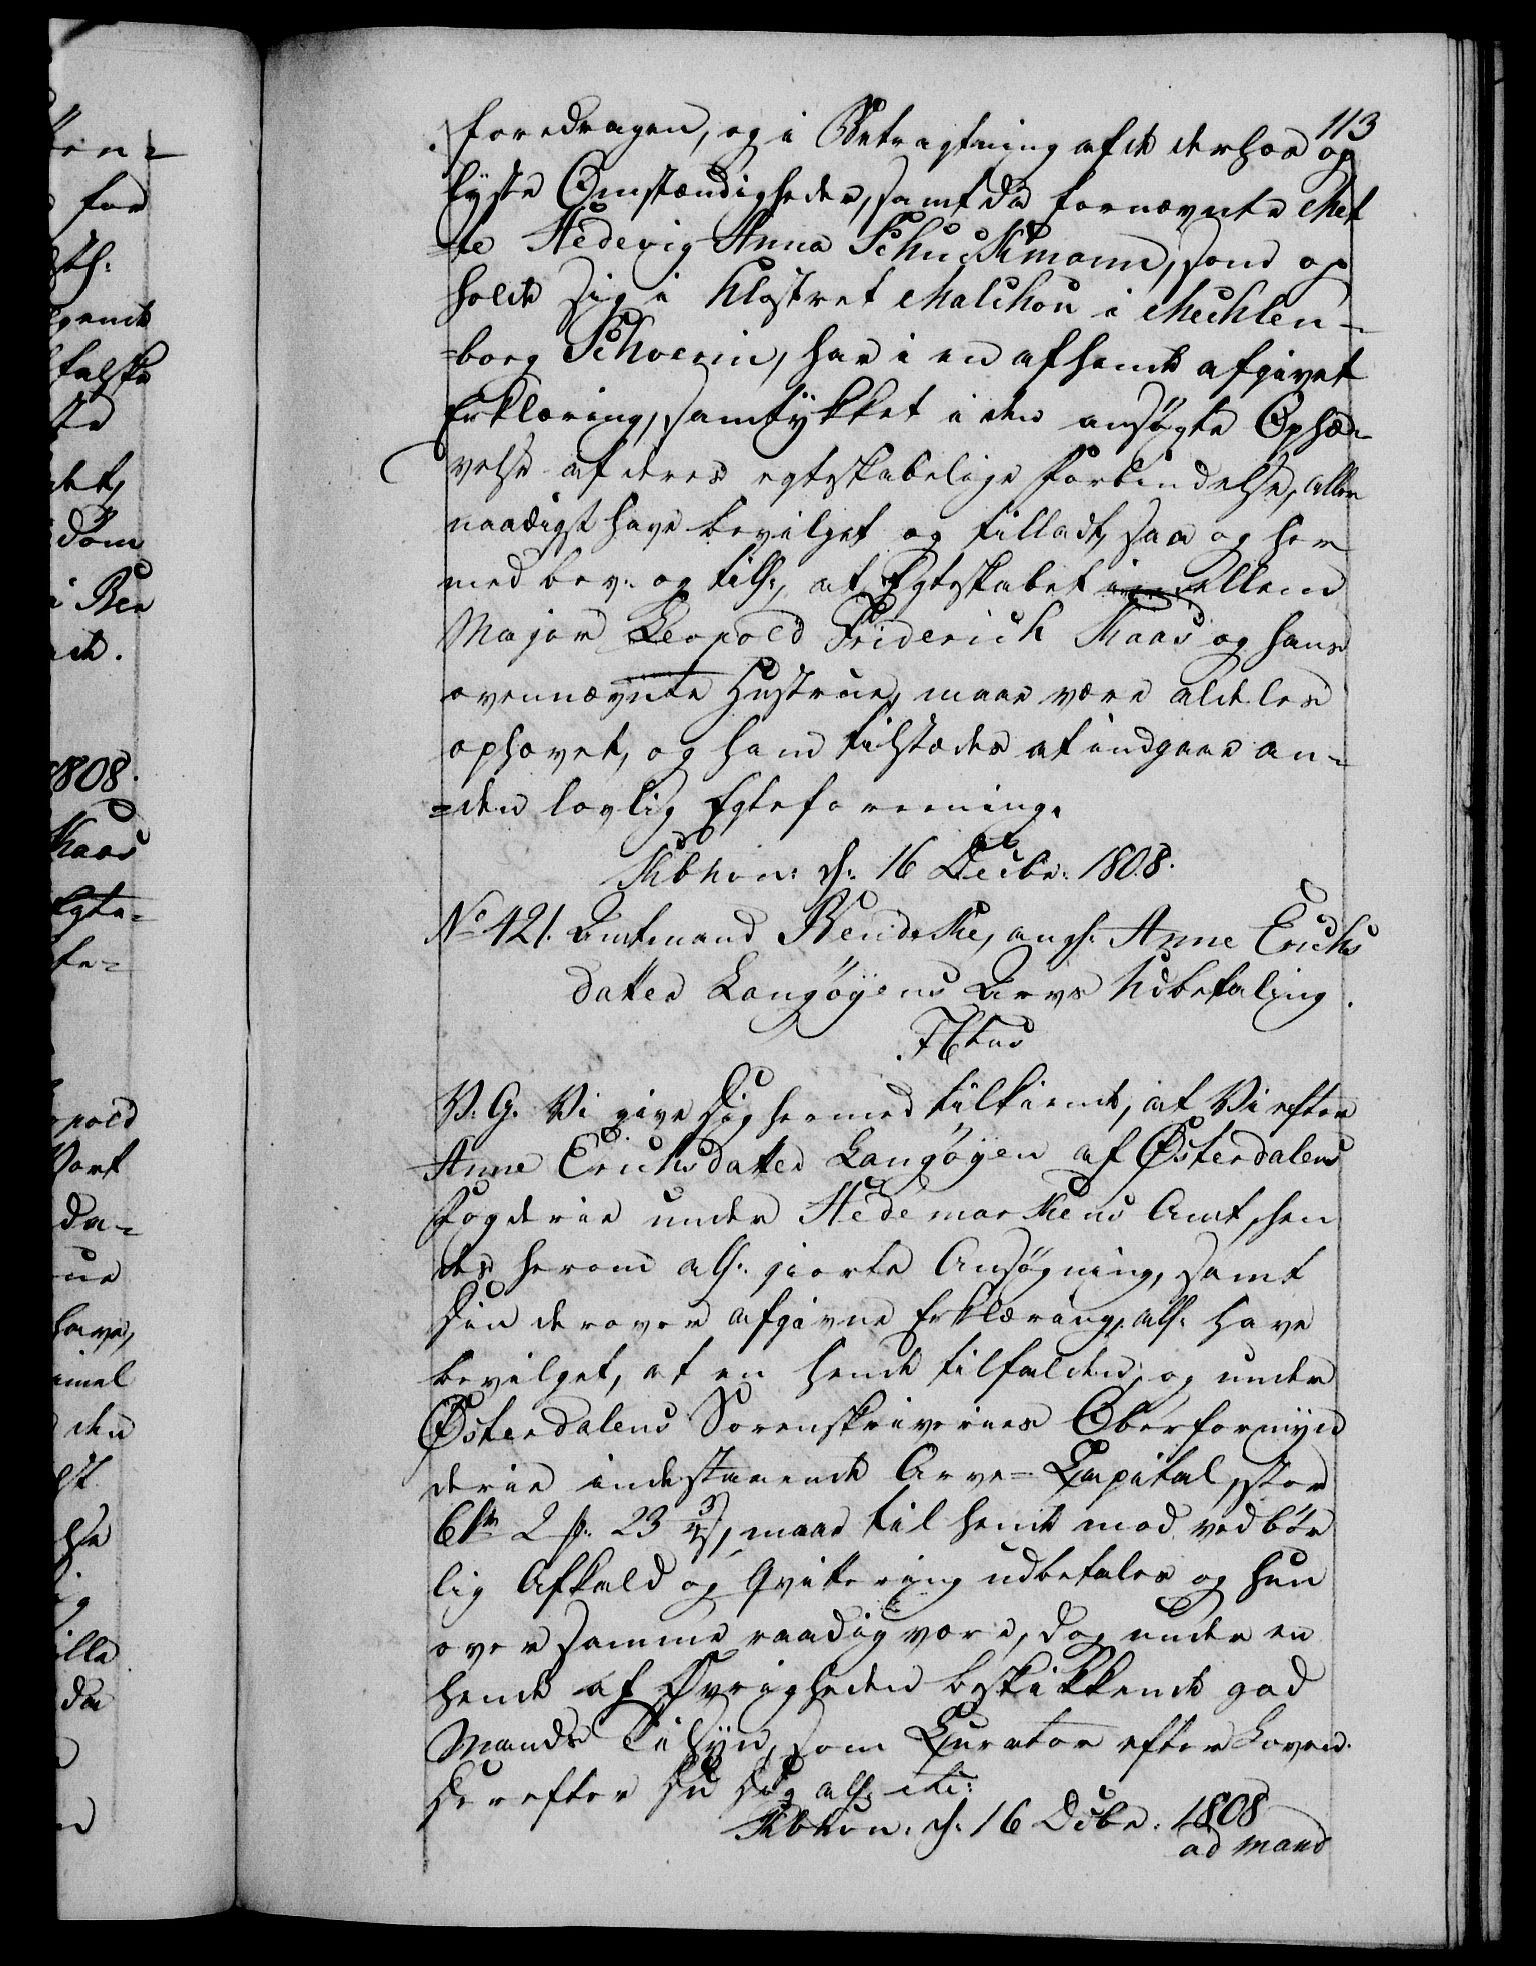 113
foredragen, og i Betragtning af de derhos op
lyste Omstændigheder, samt da fornævnte Met
-te Hedevig Anna Schuckmann, som op
holdt sig i Klostret Malchou i Mechlen-
-borg Schverin, har i en afhende afgivet
Erklæring, samtykket i den ansøgte Ophæ-
velse af deres egteskabelige Forbindelse, aller
naadigst have bevilget og tilladt, saa og her
med bev: og till:, at Egteskabet imellem
Major Leopold Friderich Kaas og hans
ovennævnte Hustrue, maae være aldeles
ophævet, og ham tilstædes at indgaae an-
-den lovlig Egteforeening.
Kbhvn: d: 16 Decbr: 1808.
No 421. Amtmand Bendeke, angl: Anne Erichs
datter Langøyens Arvs Udbetaling.
F6tus
V. G. Vi give Dig hermed tilkiende, at Vi efter
Anne Erichsdatter Langøyen af Østerdalens
Fogderie under Hedemarkens Amt, hen
des herom all: giorte Ansøgning, samt
Din derover afgivne Erklæring, all: have
bevilget, at en hende tilfalden, og under
Østerdalens Sorenskriveries Oberformyn
derie indestaaende Arve-Capital, stor
61 rd 2 # 23 3/4 s, maae til hende mod vedbør
lig Afkald og Qvittering udbetales og hun
over samme raadig være, dog under en
hende af Øvrigheden beskikkende god
Mands Tilsyn, som Curator efter Loven.
Derefter Du Dig all: etc:
Kbhvn: d: 16 Decbr: 1808
ad mand